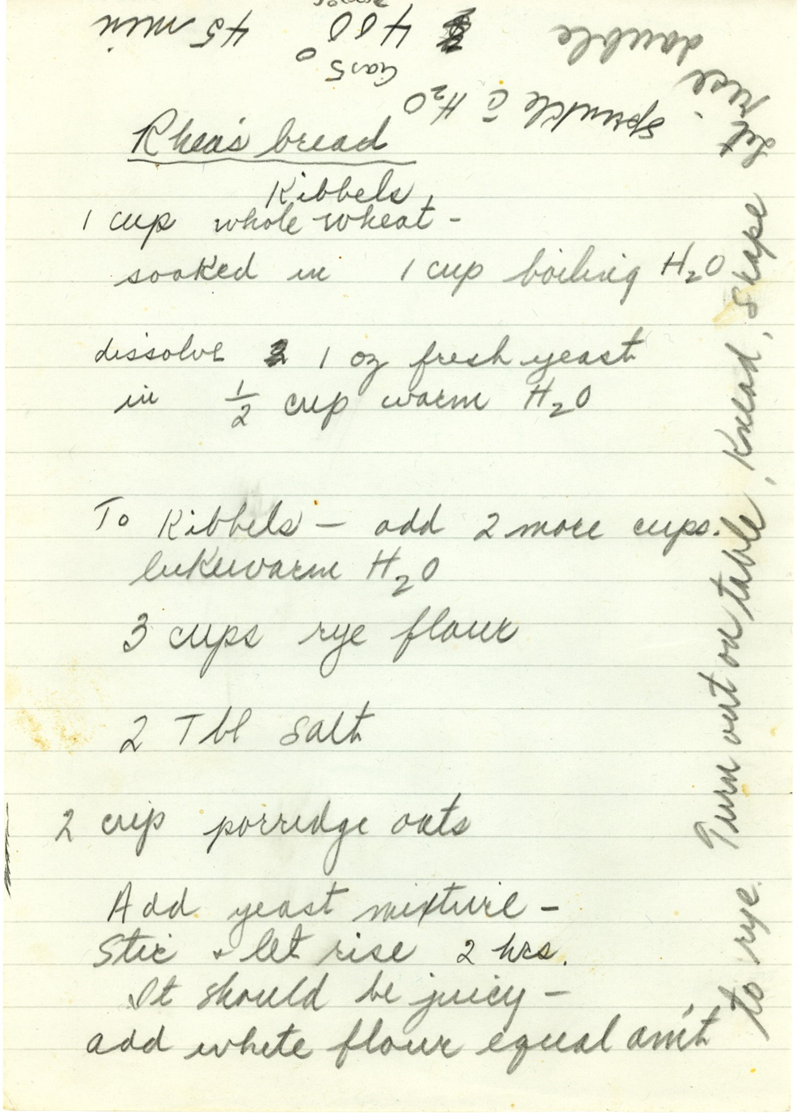 Rhea's bread
Kibbels
1 cup whole wheat -
soaked in 1 cup boiling H₂O
dissolve 1 oz fresh yeast
in ½ cup warm H₂O
To Kibbels - add 2 more cups.
lukewarm H₂O
3 cups rye flour
2 Tbl salt
2 cup porridge oats
Add yeast mixture -
Stir + let rise 2 hrs.
It should be juicy -
add white flour equal am't
to rye. Turn out on table, Knead, shape
Let rise
double
Sprinkle c̄ H₂O
Gas 5°
400 45 min